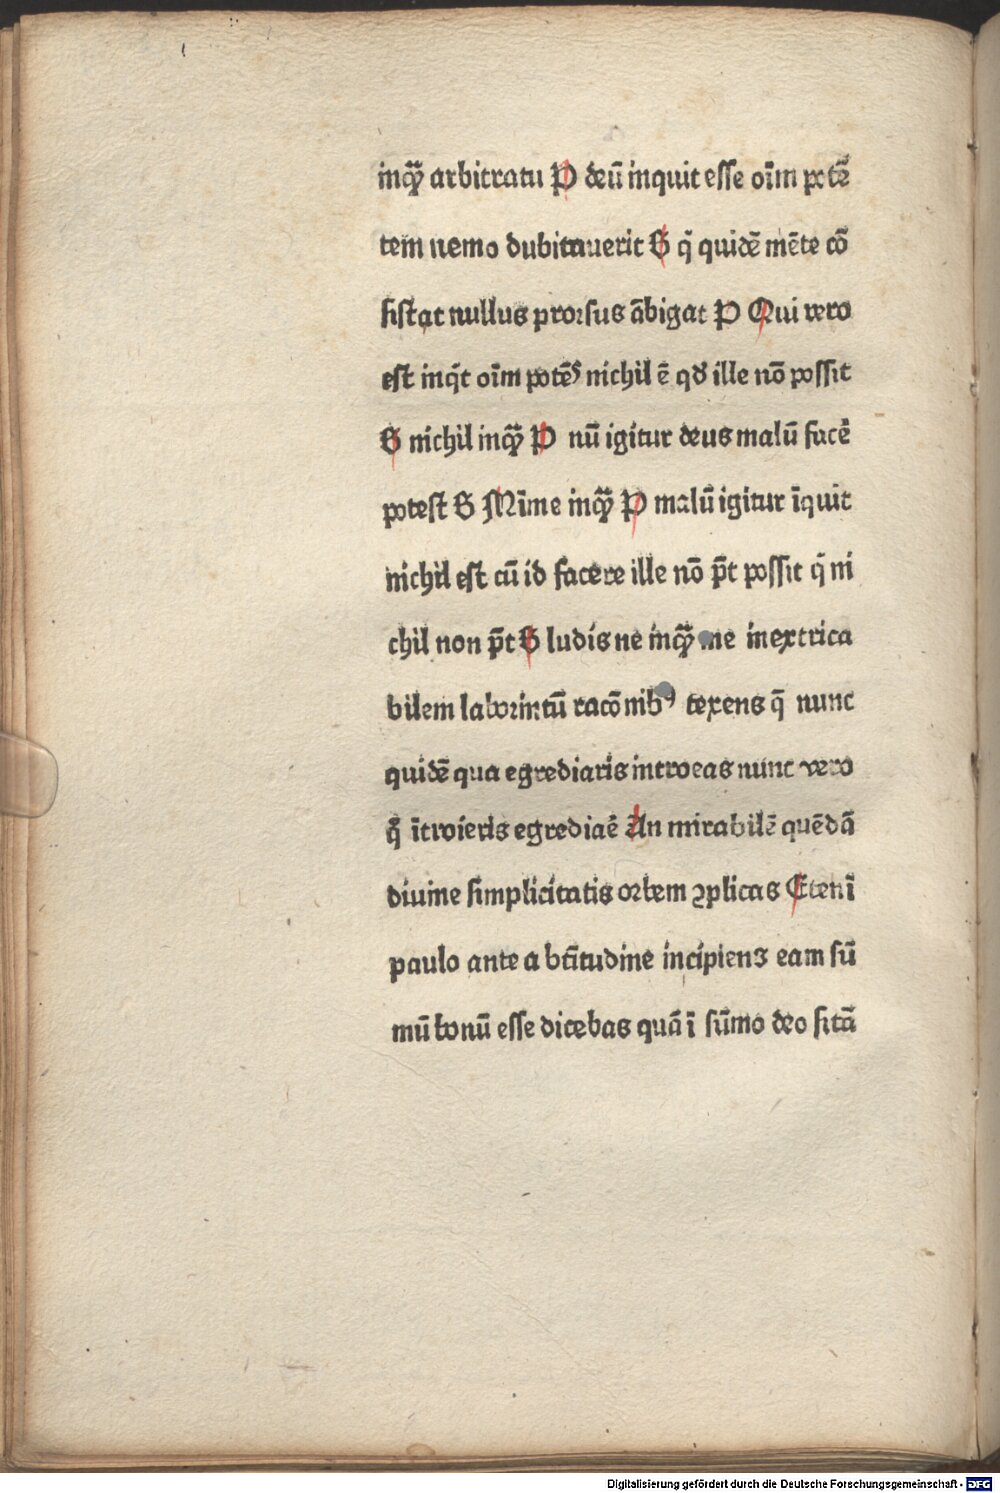 inqȝ arbitratu P deū inquit esse oīm potē
tem nemo dubitauerit B q̄ quidē mēte cō
sistat nullus prorsus ābigat P Qui vero
est inq̄t oīm potēs nichil ē qd̓ ille nō possit
B nichil inqȝ P nū igitur deus malū facē
potest B Mīme inqȝ P malū igitur īquit
nichil est cū id facere ille nō pt̄ possit q̄ ni
chil non pt̄ B ludis ne inqȝ me inextrica
bilem laborintū racōnibꝰ texens q̄ nunc
quidē qua egrediaris introeas nunc vero
q̄ ītroieris egrediaē An mirabilē quēdā
diuine simplicitatis orbem ꝯplicas Etenī
paulo ante a bt̄itudine incipiens eam sū
mū bonū esse dicebas quā ī sūmo deo sitā
Digitalisierung gefördert durch die Deutsche Forschungsgemeinschaft - DFG